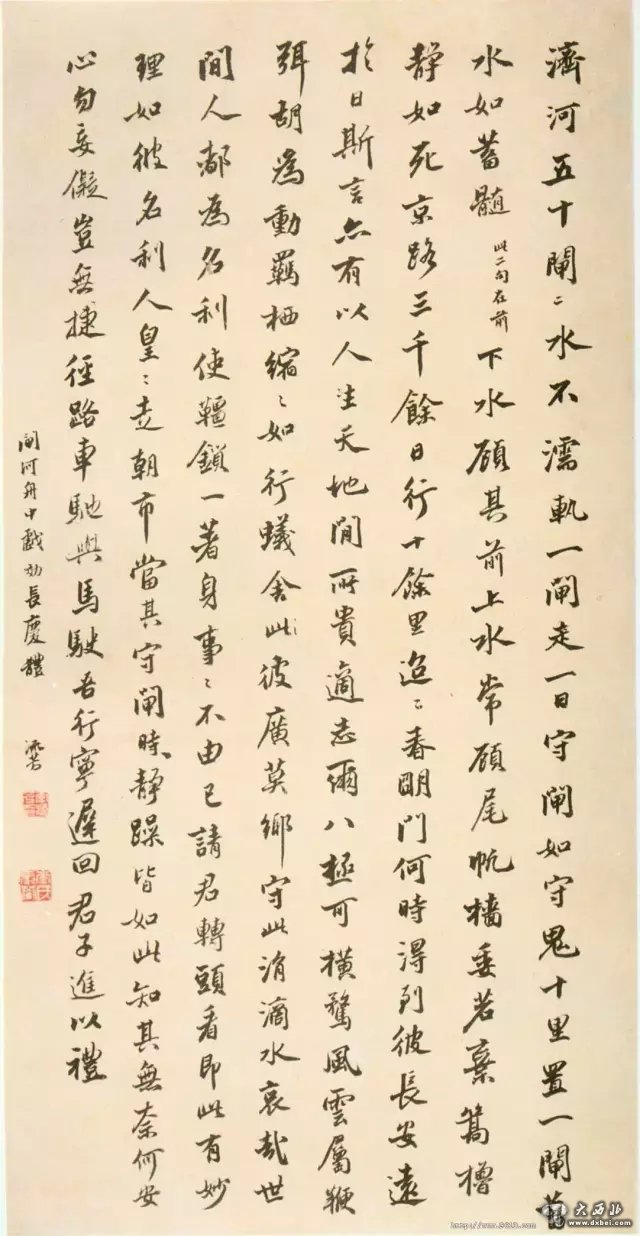 濟河五十閘〻水不濡軌一閘走一日守閘如守鬼十里置一閘蓄
水如蓄髓此二句在前下水顧其前上水常顧尾帆檣委若棄篙櫓
靜如死京路三千餘日行十餘里迢〻春明門何時得到彼長安遠
於日斯言亦有以人生天地間所貴適志爾八極可橫騖風雲屬鞭
弭胡為動羈栖縮〻如行蟻舍此彼廣莫鄉守此涓滴水哀哉世
間人都為名利使韁鎖一著身事〻不由己請君轉頭看即此有妙
理如彼名利人皇〻走朝市當其守閘時靜躁皆如此知其無奈何安
心勿妄儗豈無捷徑路車馳與馬駛吾行寧遲回君子進以禮
閘河舟中戲効長慶體
大西北
www.dxbei.com